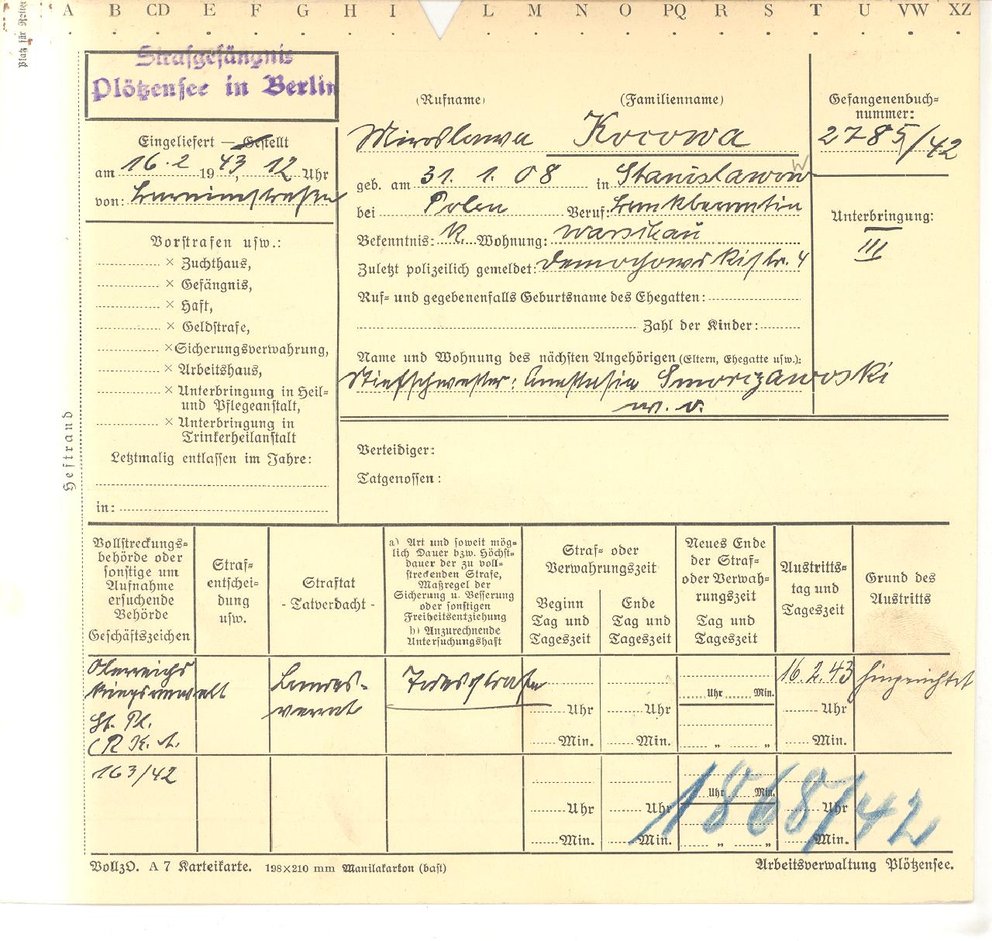 A B CD E F G H I L M N O PQ R S T U VW XZ
Strafgefängnis
Plötzensee in Berlin
Eingeliefert — Gestellt
am 16.2 1943, 12 Uhr
von:
Vorstrafen usw.:
× Zuchthaus,
× Gefängnis,
× Haft,
× Geldstrafe,
× Sicherungsverwahrung,
× Arbeitshaus,
× Unterbringung in Heil-
und Pflegeanstalt,
× Unterbringung in
Trinkerheilanstalt
Letztmalig entlassen im Jahre:
in:
Heftrand
(Rufname) (Familienname)
Miroslawa Kocowa
geb. am 31. 1. 08 in Stanislawow
bei Polen Beruf: Bankbeamtin
Bekenntnis: K. Wohnung: Warschau
Zuletzt polizeilich gemeldet:
Ruf- und gegebenenfalls Geburtsname des Ehegatten:
Zahl der Kinder:
Name und Wohnung des nächsten Angehörigen (Eltern, Ehegatte usw.):
Stiefschwester: Anastasia
w. o.
Gefangenenbuch-
nummer:
2785/42
Unterbringung:
III
Verteidiger:
Tatgenossen:
Vollstreckungs-
behörde oder
sonstige um
Aufnahme
ersuchende
Behörde
Geschäftszeichen
Straf-
entschei-
dung
usw.
Straftat
- Tatverdacht -
a) Art und soweit mög-
lich Dauer bzw. Höchst-
dauer der zu voll-
streckenden Strafe,
Maßregel der
Sicherung u. Besserung
oder sonstigen
Freiheitsentziehung
b) Anzurechnende
Untersuchungshaft
Straf- oder
Verwahrungszeit
Beginn
Tag und
Tageszeit
Ende
Tag und
Tageszeit
Neues Ende
der Straf-
oder Verwah-
rungszeit
Tag und
Tageszeit
Austritts-
tag und
Tageszeit
Grund des
Austritts
Oberreichs
kriegsanwalt
St. Pl.
(R K. A.
Landes-
verrat
Todesstrafe
Uhr
Min.
Uhr
Min.
Uhr Min.
" "
16.2.43
Uhr
Min.
hingerichtet
163/42
Uhr
Min.
Uhr
Min.
Uhr Min.
" "
Uhr
Min.
1868/42
VollzO. A 7 Karteikarte. 198×210 mm Manilakarton (hast)
Arbeitsverwaltung Plötzensee.